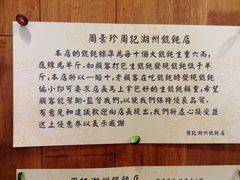 周素珍周記湖州餛飩店
本店的餛飩標準為每十個大餛飩生重六両，
底線為半斤，如顧客打包生餛飩發現餛飩低于半
斤，本店將以一賠十，老顧客在吃餛飩時發現餛飩
偏小即可要求店長馬上拿包好的生餛飩稱重，希望
顧客能幫助、監督我們，以使我們保持優良品質。
有意見和建議歡迎向店長提出，我們虛心接受并
送上優惠券以表示感謝
周記湖州餛飩店